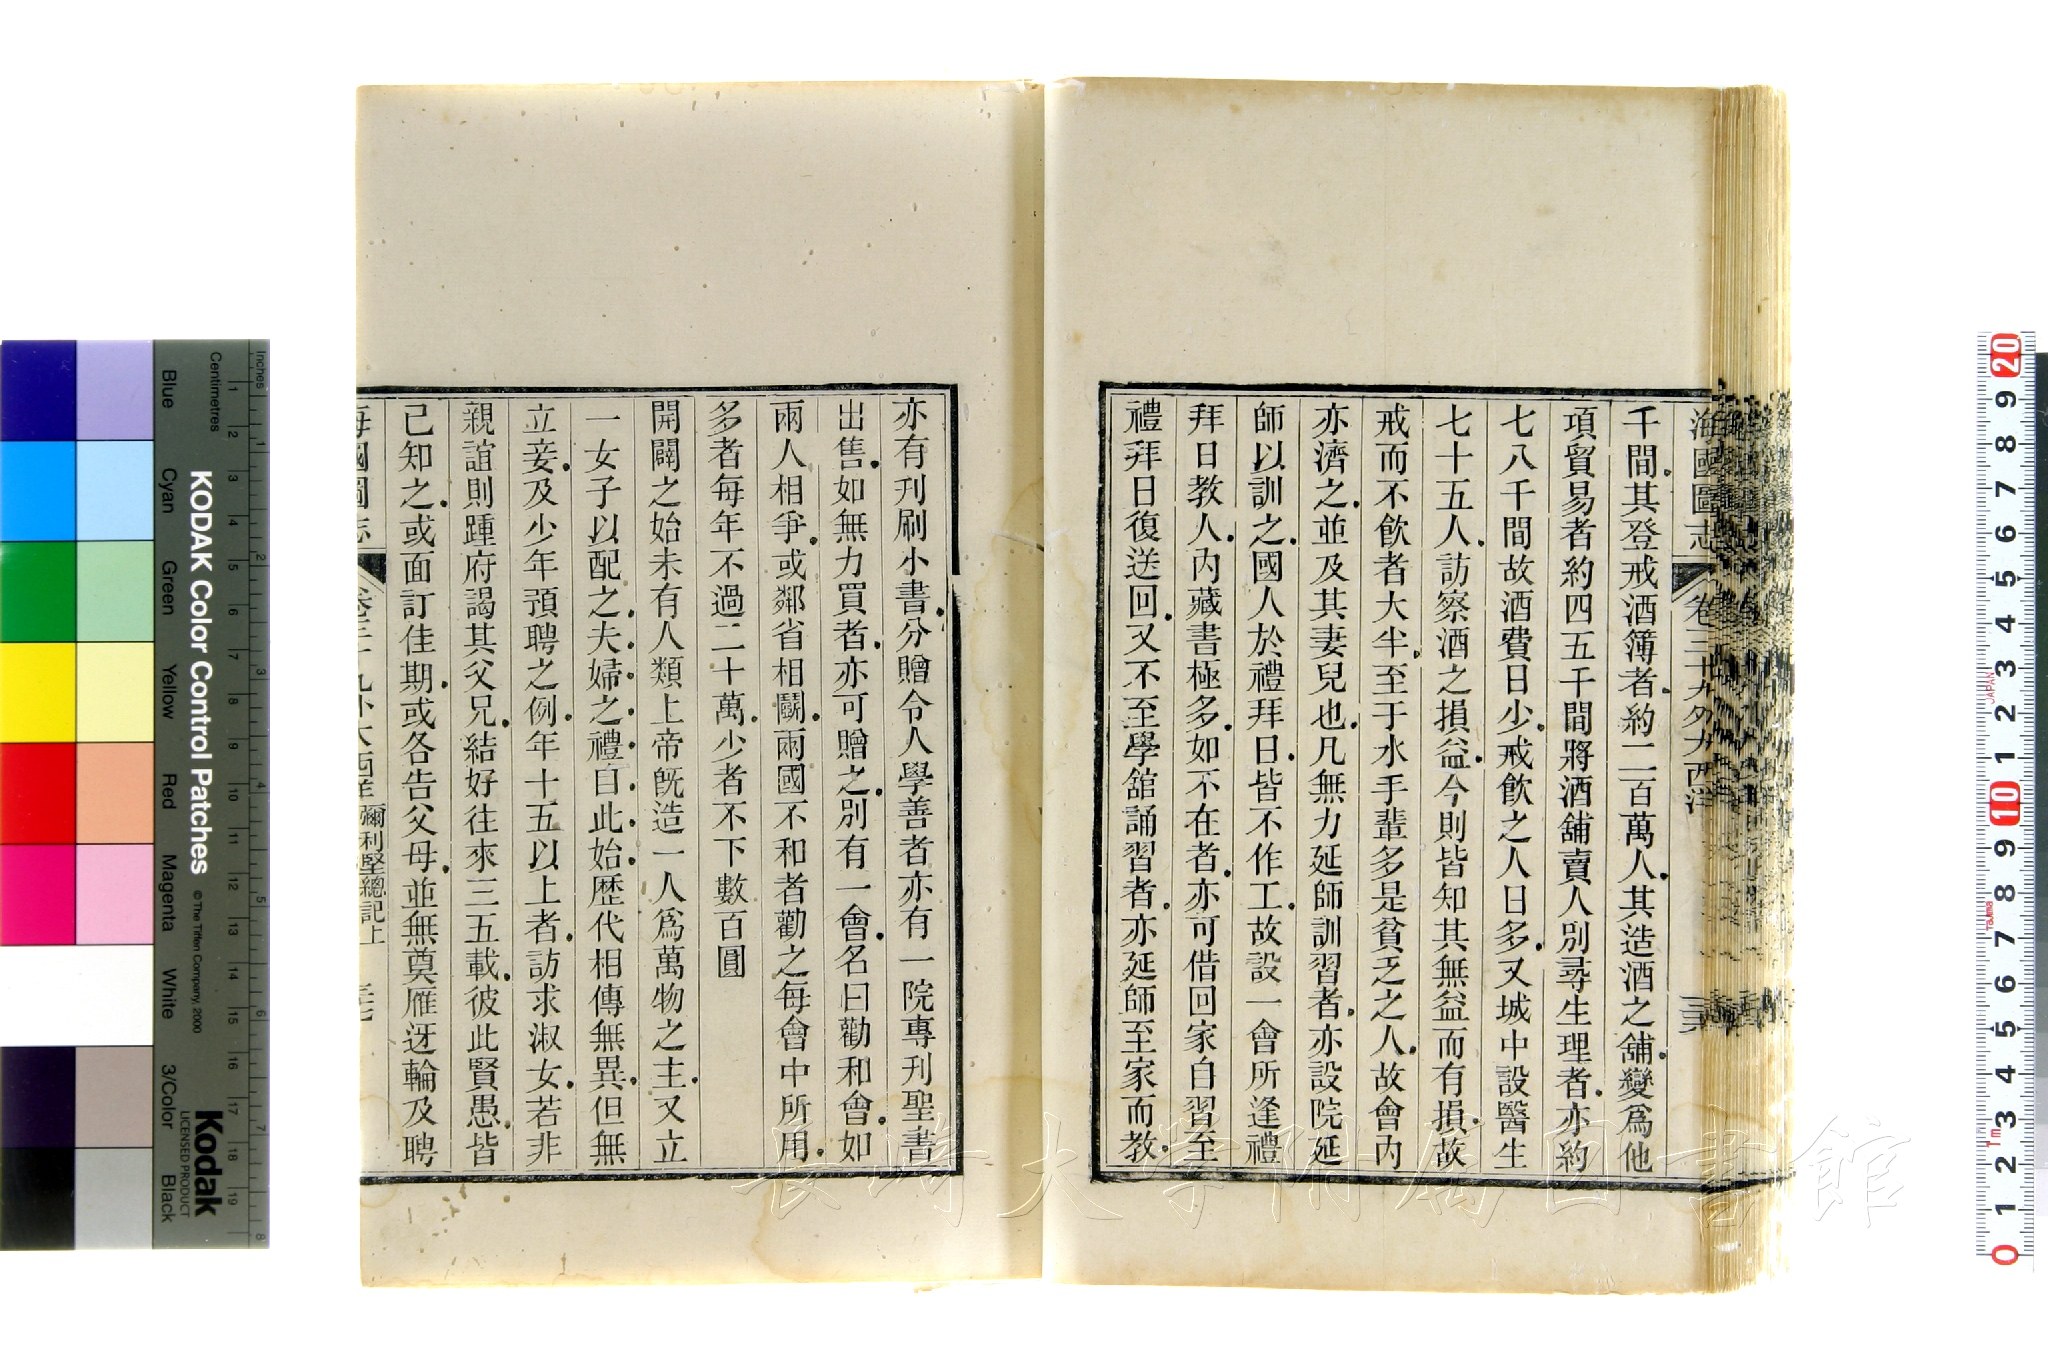 海國圖志 卷三十九外大西洋 三六
千間其登戒酒簿者約二百萬人其造酒之舖變爲他
項貿易者約四五千間將酒舖賣人別尋生理者亦約
七八千間故酒費日少戒飲之人日多又城中設醫生
七十五人訪察酒之損益今則皆知其無益而有損故
戒而不飲者大半至于水手輩多是貧乏之人故會內
亦濟之並及其妻兒也凡無力延師訓習者亦設院延
師以訓之國人於禮拜日皆不作工故設一會所逢禮
拜日教人內藏書極多如不在者亦可借回家自習至
禮拜日復送回又不至學舘誦習者亦延師至家而教
亦有刋刷小書分贈令人學善者亦有一院專刋聖書
出售如無力買者亦可贈之別有一會名曰勸和會如
兩人相爭或鄰省相鬬兩國不和者勸之每會中所用
多者每年不過二十萬少者不下數百圓
開闢之始未有人類上帝旣造一人爲萬物之主又立
一女子以配之夫婦之禮自此始歷代相傳無異但無
立妾及少年預聘之例年十五以上者訪求淑女若非
親誼則踵府謁其父兄結好往來三五載彼此賢愚皆
己知之或面訂佳期或各告父母並無奠雁迓輪及聘
海國圖志 卷三十九外大西洋 彌利堅總記上 三七
長崎大学附属図書館
KODAK Color Control Patches © The Tiffen Company, 2000
Kodak LICENSED PRODUCT
Blue Cyan Green Yellow Red Magenta White 3/Color Black
Inches 1 2 3 4 5 6 7 8
Centimetres 1 2 3 4 5 6 7 8 9 10 11 12 13 14 15 16 17 18 19
20 9 8 7 6 5 4 3 2 1 10 9 8 7 6 5 4 3 2 1 0
JAPAN
Tajima
Tm